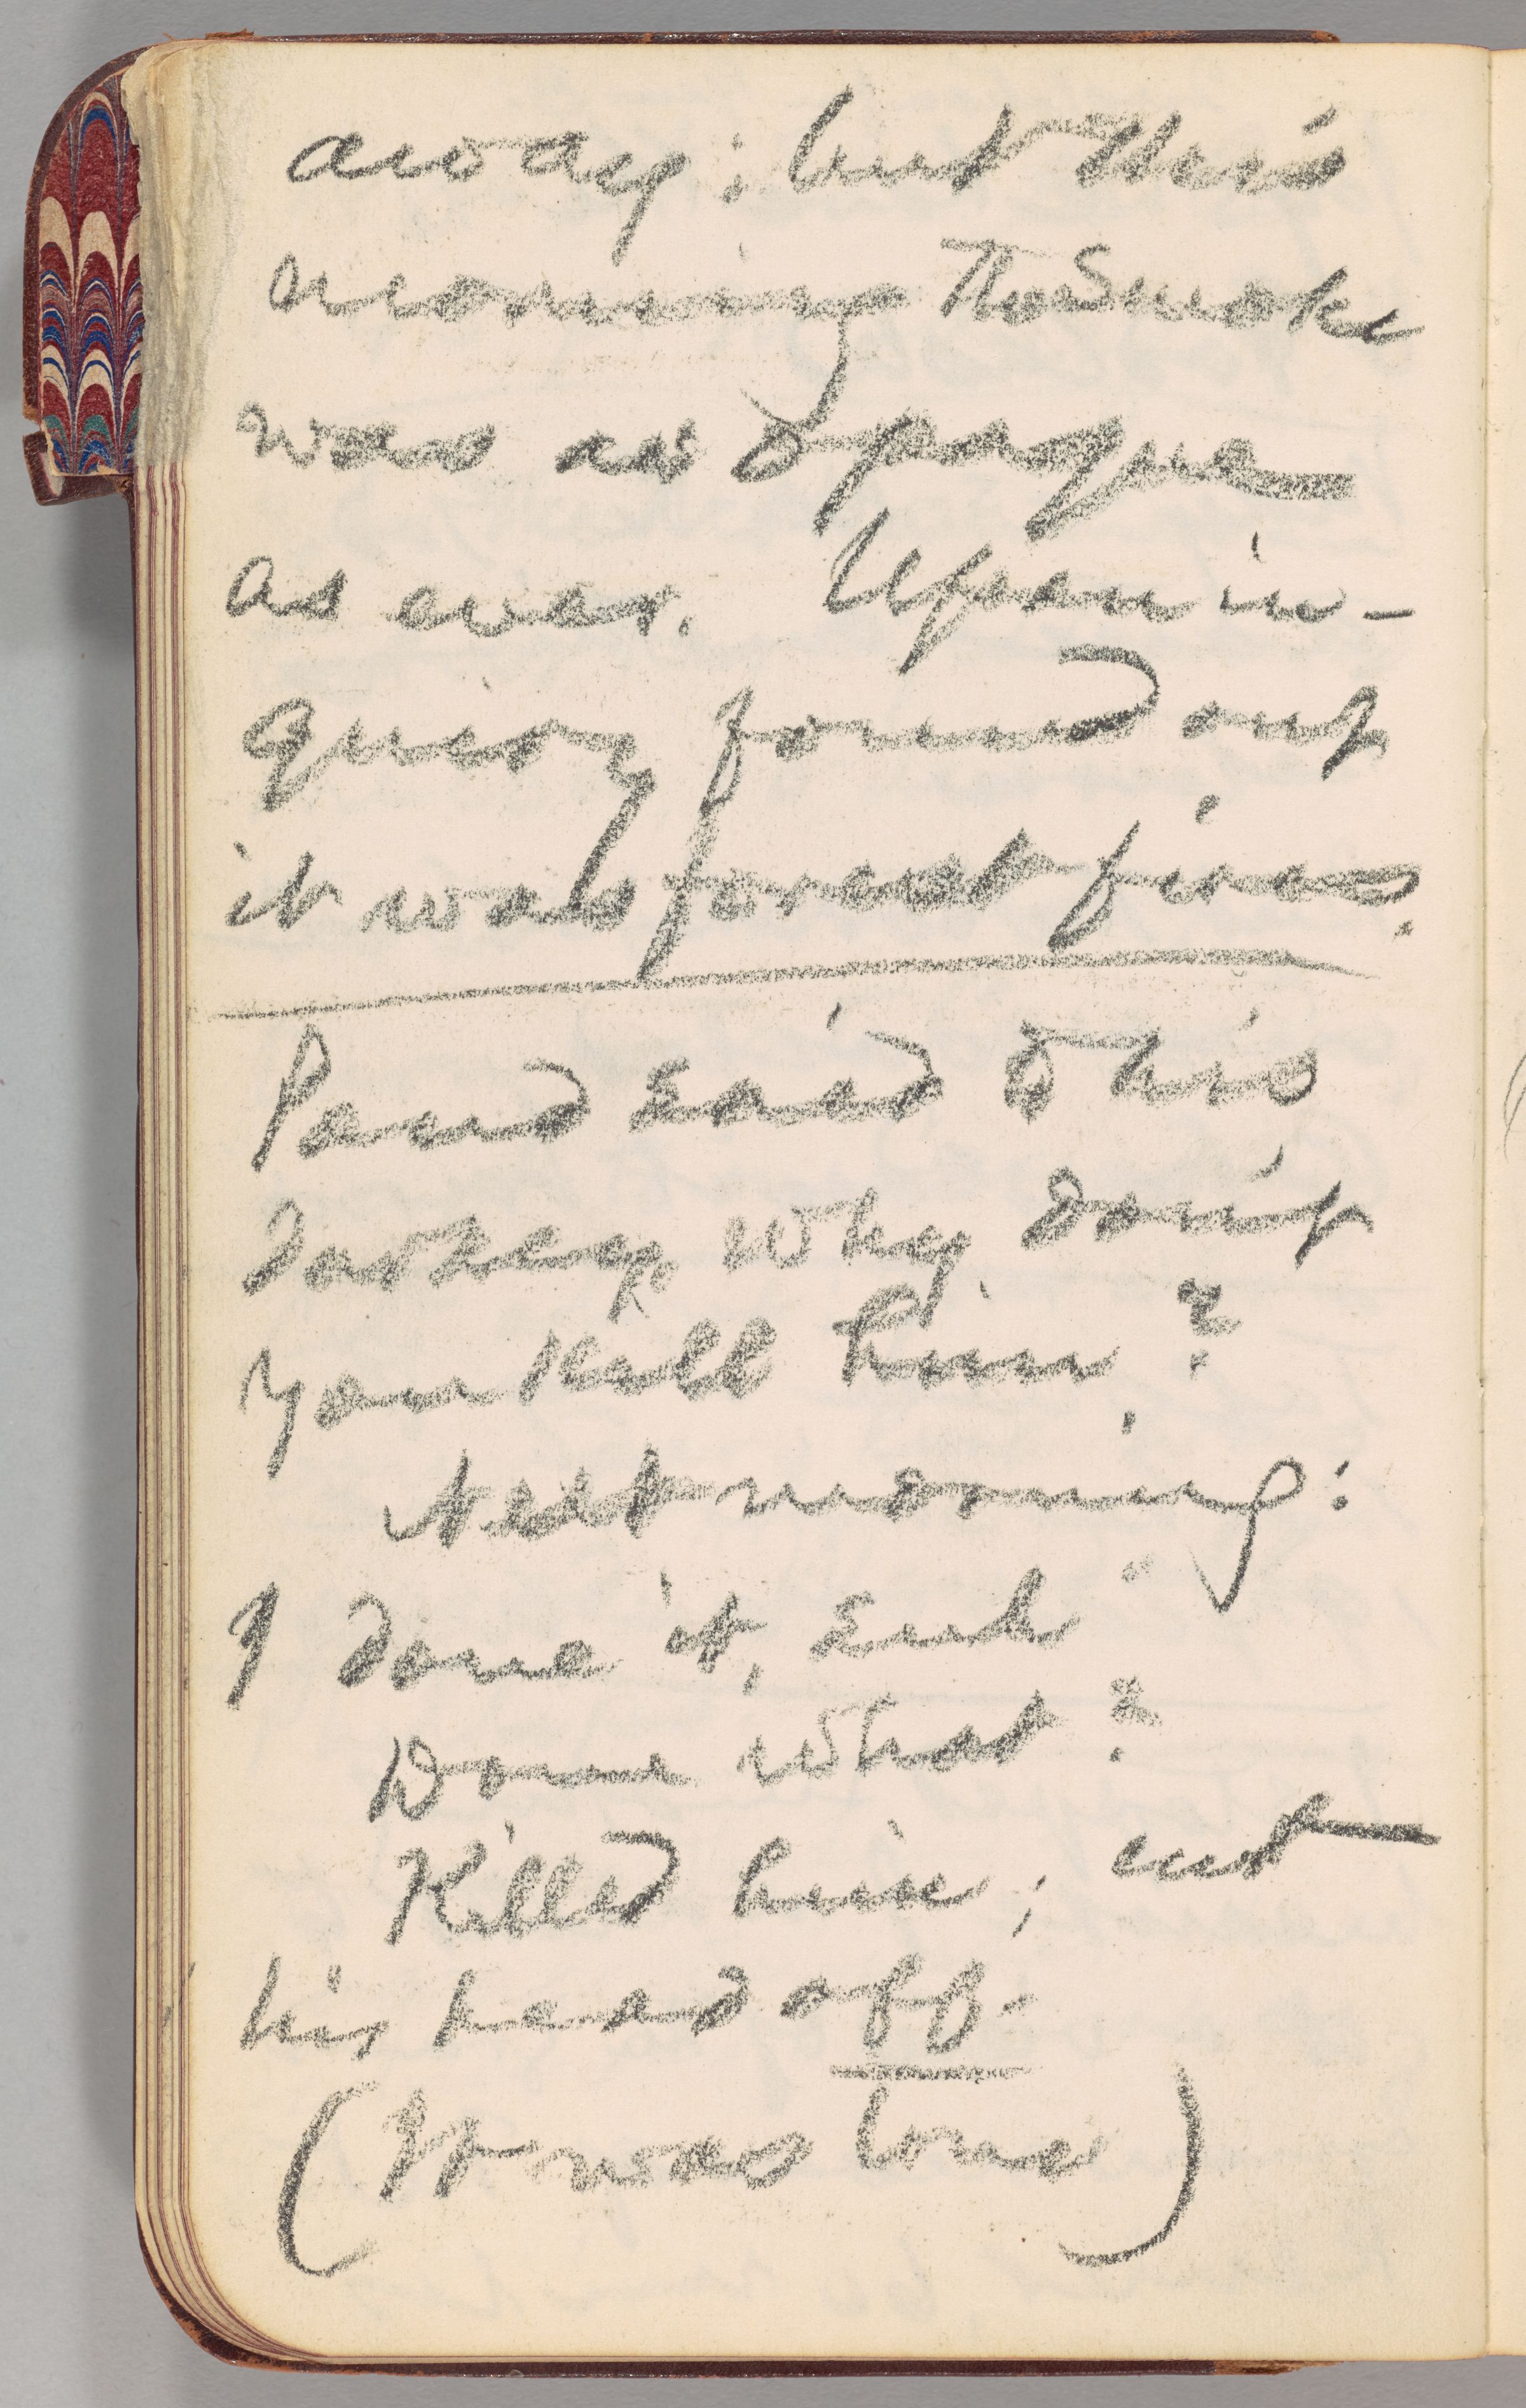 away; but this
morning the smoke
was as opaque
as ever. Upon in-
quiry found out
it was forest fires.
Pond said to his
darkey, why don't
you kill him?
Next morning:
I done it, Suh
Done what?
Killed him; cut
his head off.
(It was)